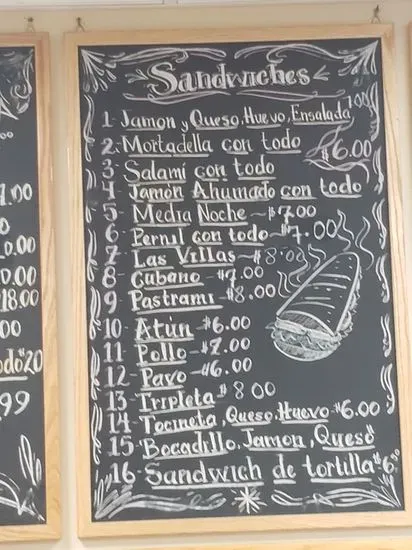 Sandwiches
1- Jamon y Queso, Huevo, Ensalada 7.00
2- Mortadella con todo
$6.00
3- Salami con todo
4- Jamón Ahumado con todo
5- Media Noche ~ $7.00
6- Pernil con todo ~ $7.00
7- Las Villas ~ $8.00
8- Cubano ~ $7.00
9- Pastrami ~ $8.00
10- Atún - $6.00
11- Pollo - $7.00
12- Pavo - $6.00
13- Tripleta $8.00
14- Tocineta, Queso, Huevo - $6.00
15- Bocadillo, Jamon, Queso
16- Sandwich de tortilla $6.
.00
0.00
0.00
18.00
.00
$20
.99